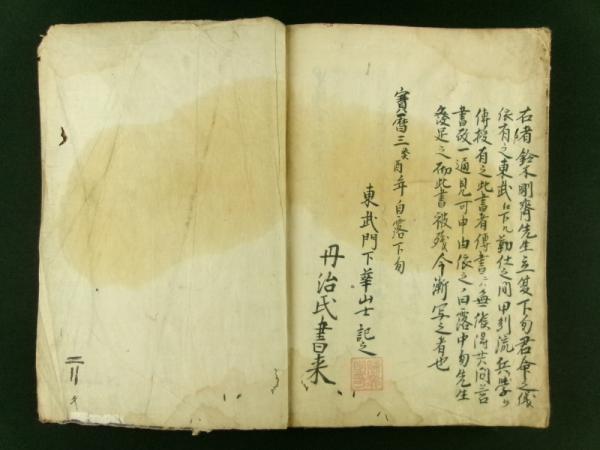 右者鈴木剛齊先生立夏下旬君命之儀
依有之東武江下凡勤仕之間甲刕流兵学
傳授有之此書者傳書ニハ無候得共間
書故一通見可申由依之白露中旬先生
發足之砌此書被残今漸写之者也
寳暦三癸酉年白露下旬
東武門下華山士記之
丹治氏書来